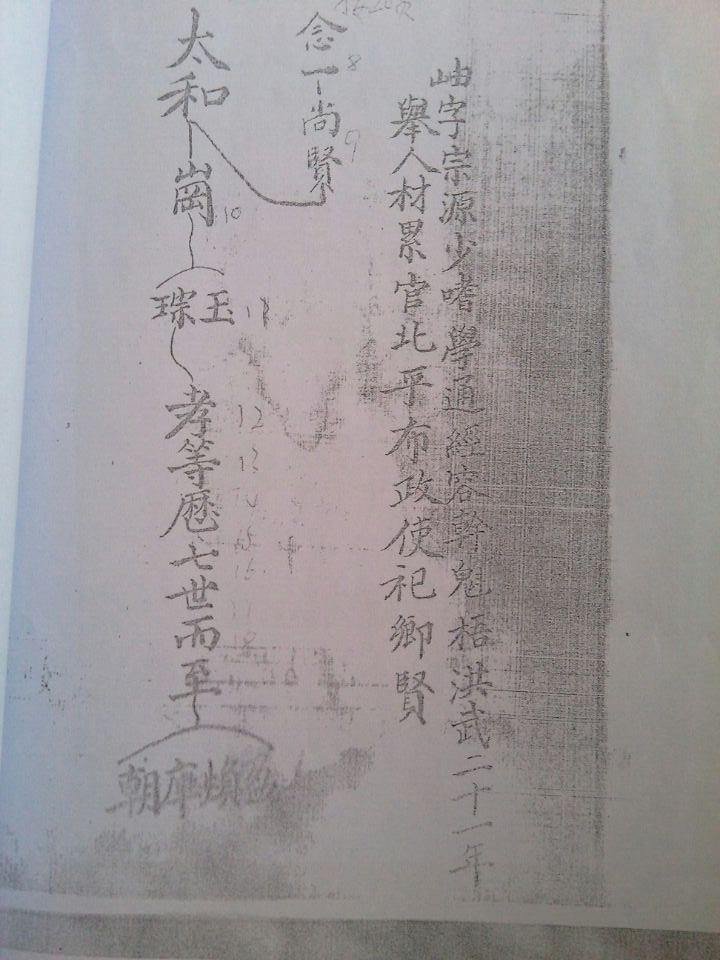 岫字宗源少嗜學通經容幹魁梧洪武二十一年
舉人材累官北平布政使祀鄉賢
念一尚賢
8
9
太和
崗
10
琮玉
11
孝等歷七世而至
12
13
14
15
16
17
18
朝 煩